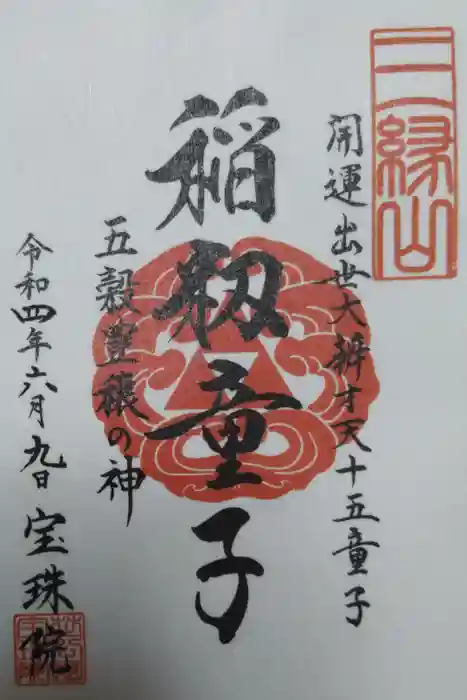 三縁山
開運出世大辨才天十五童子
稲籾童子
五穀豊穣の神
令和四年六月九日 宝珠院